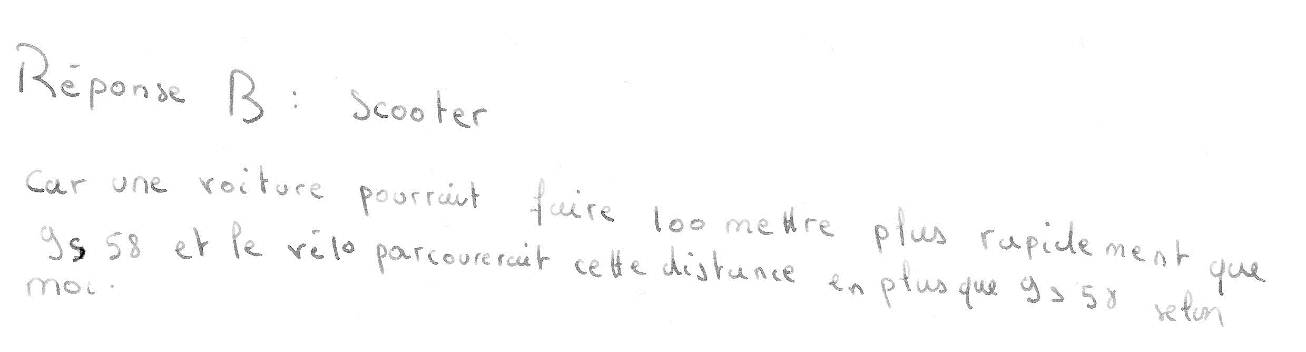 Réponse B : Scooter
Car une voiture pourrait faire 100 mettre plus rapidement que
9s 58 et le vélo parcourerait cette distance en plus que 9s 58 selon
moi.